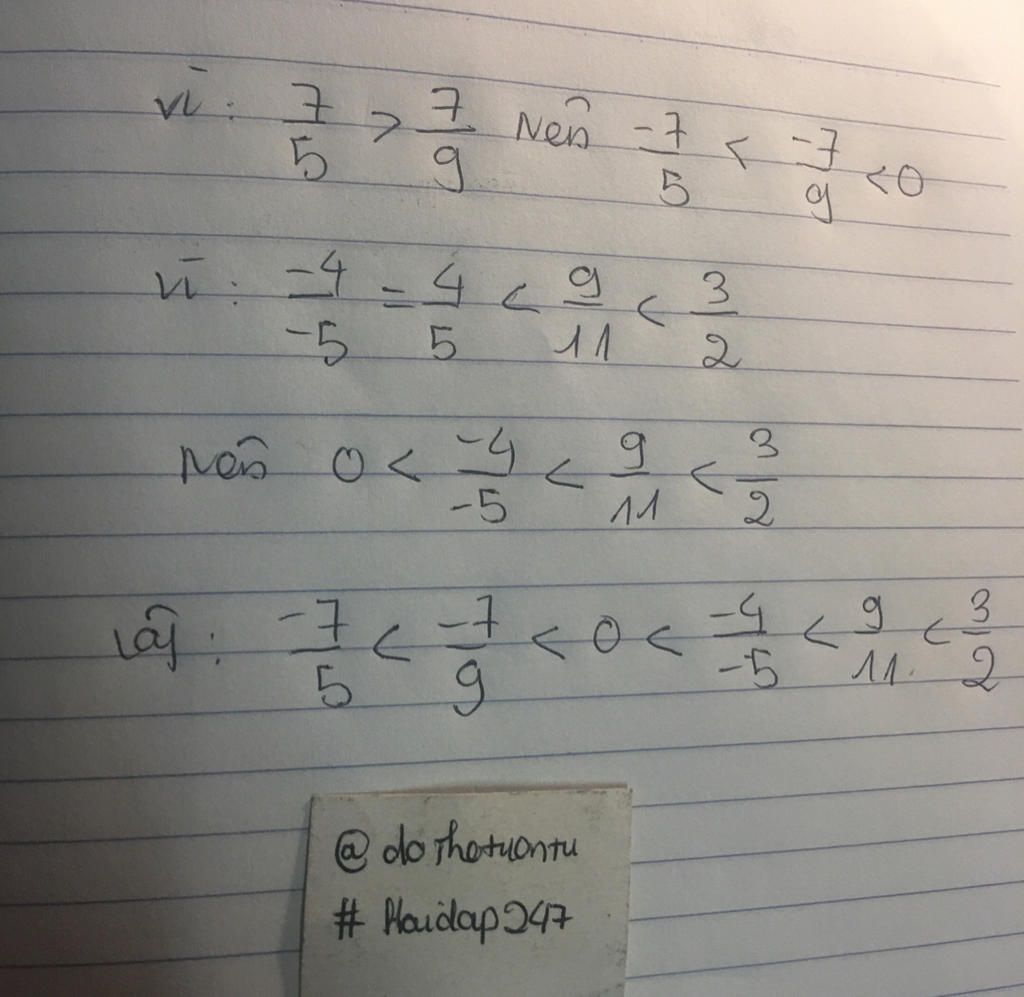 Vì: 7/5 > 7/9 Nên -7/5 < -7/9 < 0
Vì: -4/-5 = 4/5 < 9/11 < 3/2
Nên 0 < -4/-5 < 9/11 < 3/2
Vậy: -7/5 < -7/9 < 0 < -4/-5 < 9/11 < 3/2
@dothetuantu
#Hoidap247